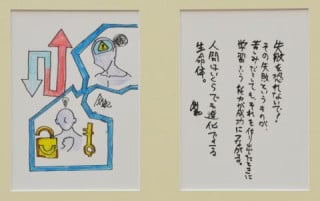 失敗を恐れないで!
その失敗というものが、
苦みだとしても、それを作り出したときに
学習という能力が成功につながる。
人間はいくらでも進化できる
生命体。